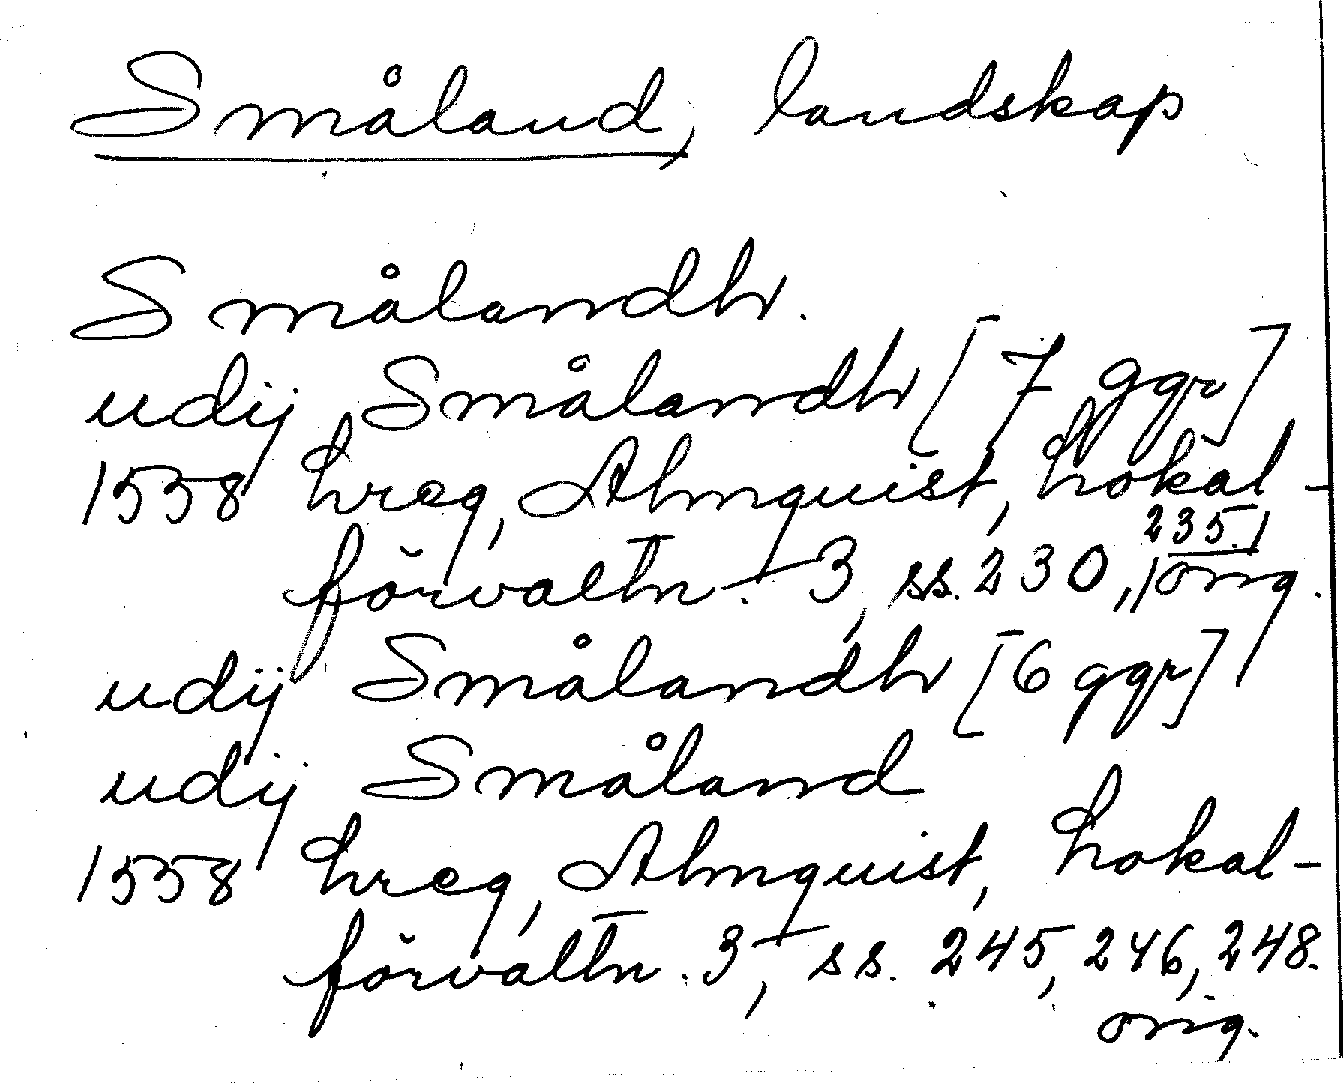 Småland, landskap
Smålandh.
udij Smålandh [7 ggr]
1558 hreg, Almquist, Lokal-
förvaltn. 3, ss. 230, 235. orig.
udij Smålandh [6 ggr]
udij Småland
1558 hreg, Almquist, Lokal-
förvaltn. 3, ss. 245, 246, 248.
orig.